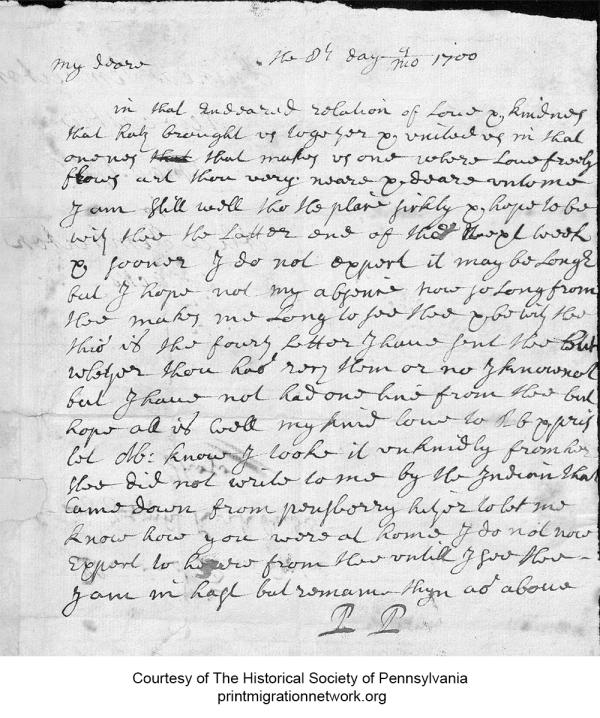 my deare the 8th day 4/mo 1700
in that Endeared relation of Loue & kindnes
that hath brought vs together & vnited vs in that
onenes that that makes vs one where Loue freely
flows art thou very neare & deare vnto me
I am still well tho the place sickly & hope to be
with thee the Latter end of the next week
& sooner I do not expect it may be Longer
but I hope not my absence now so Long from
thee makes me Long to see thee & be with thee
this is the fourth Letter I haue sent thee but
whether thou has recd them or no I know not
but I haue not had one line from thee but
hope all is well my kind loue to &
let know I tooke it vnkindly from her
shee did not write to me by the Indian that
Came down from pensberry hither to let me
know how you were at home I do not now
Expect to heare from thee vntill I see thee -
I am in hast but remain thyn as aboue
P P
Courtesy of The Historical Society of Pennsylvania
printmigrationnetwork.org